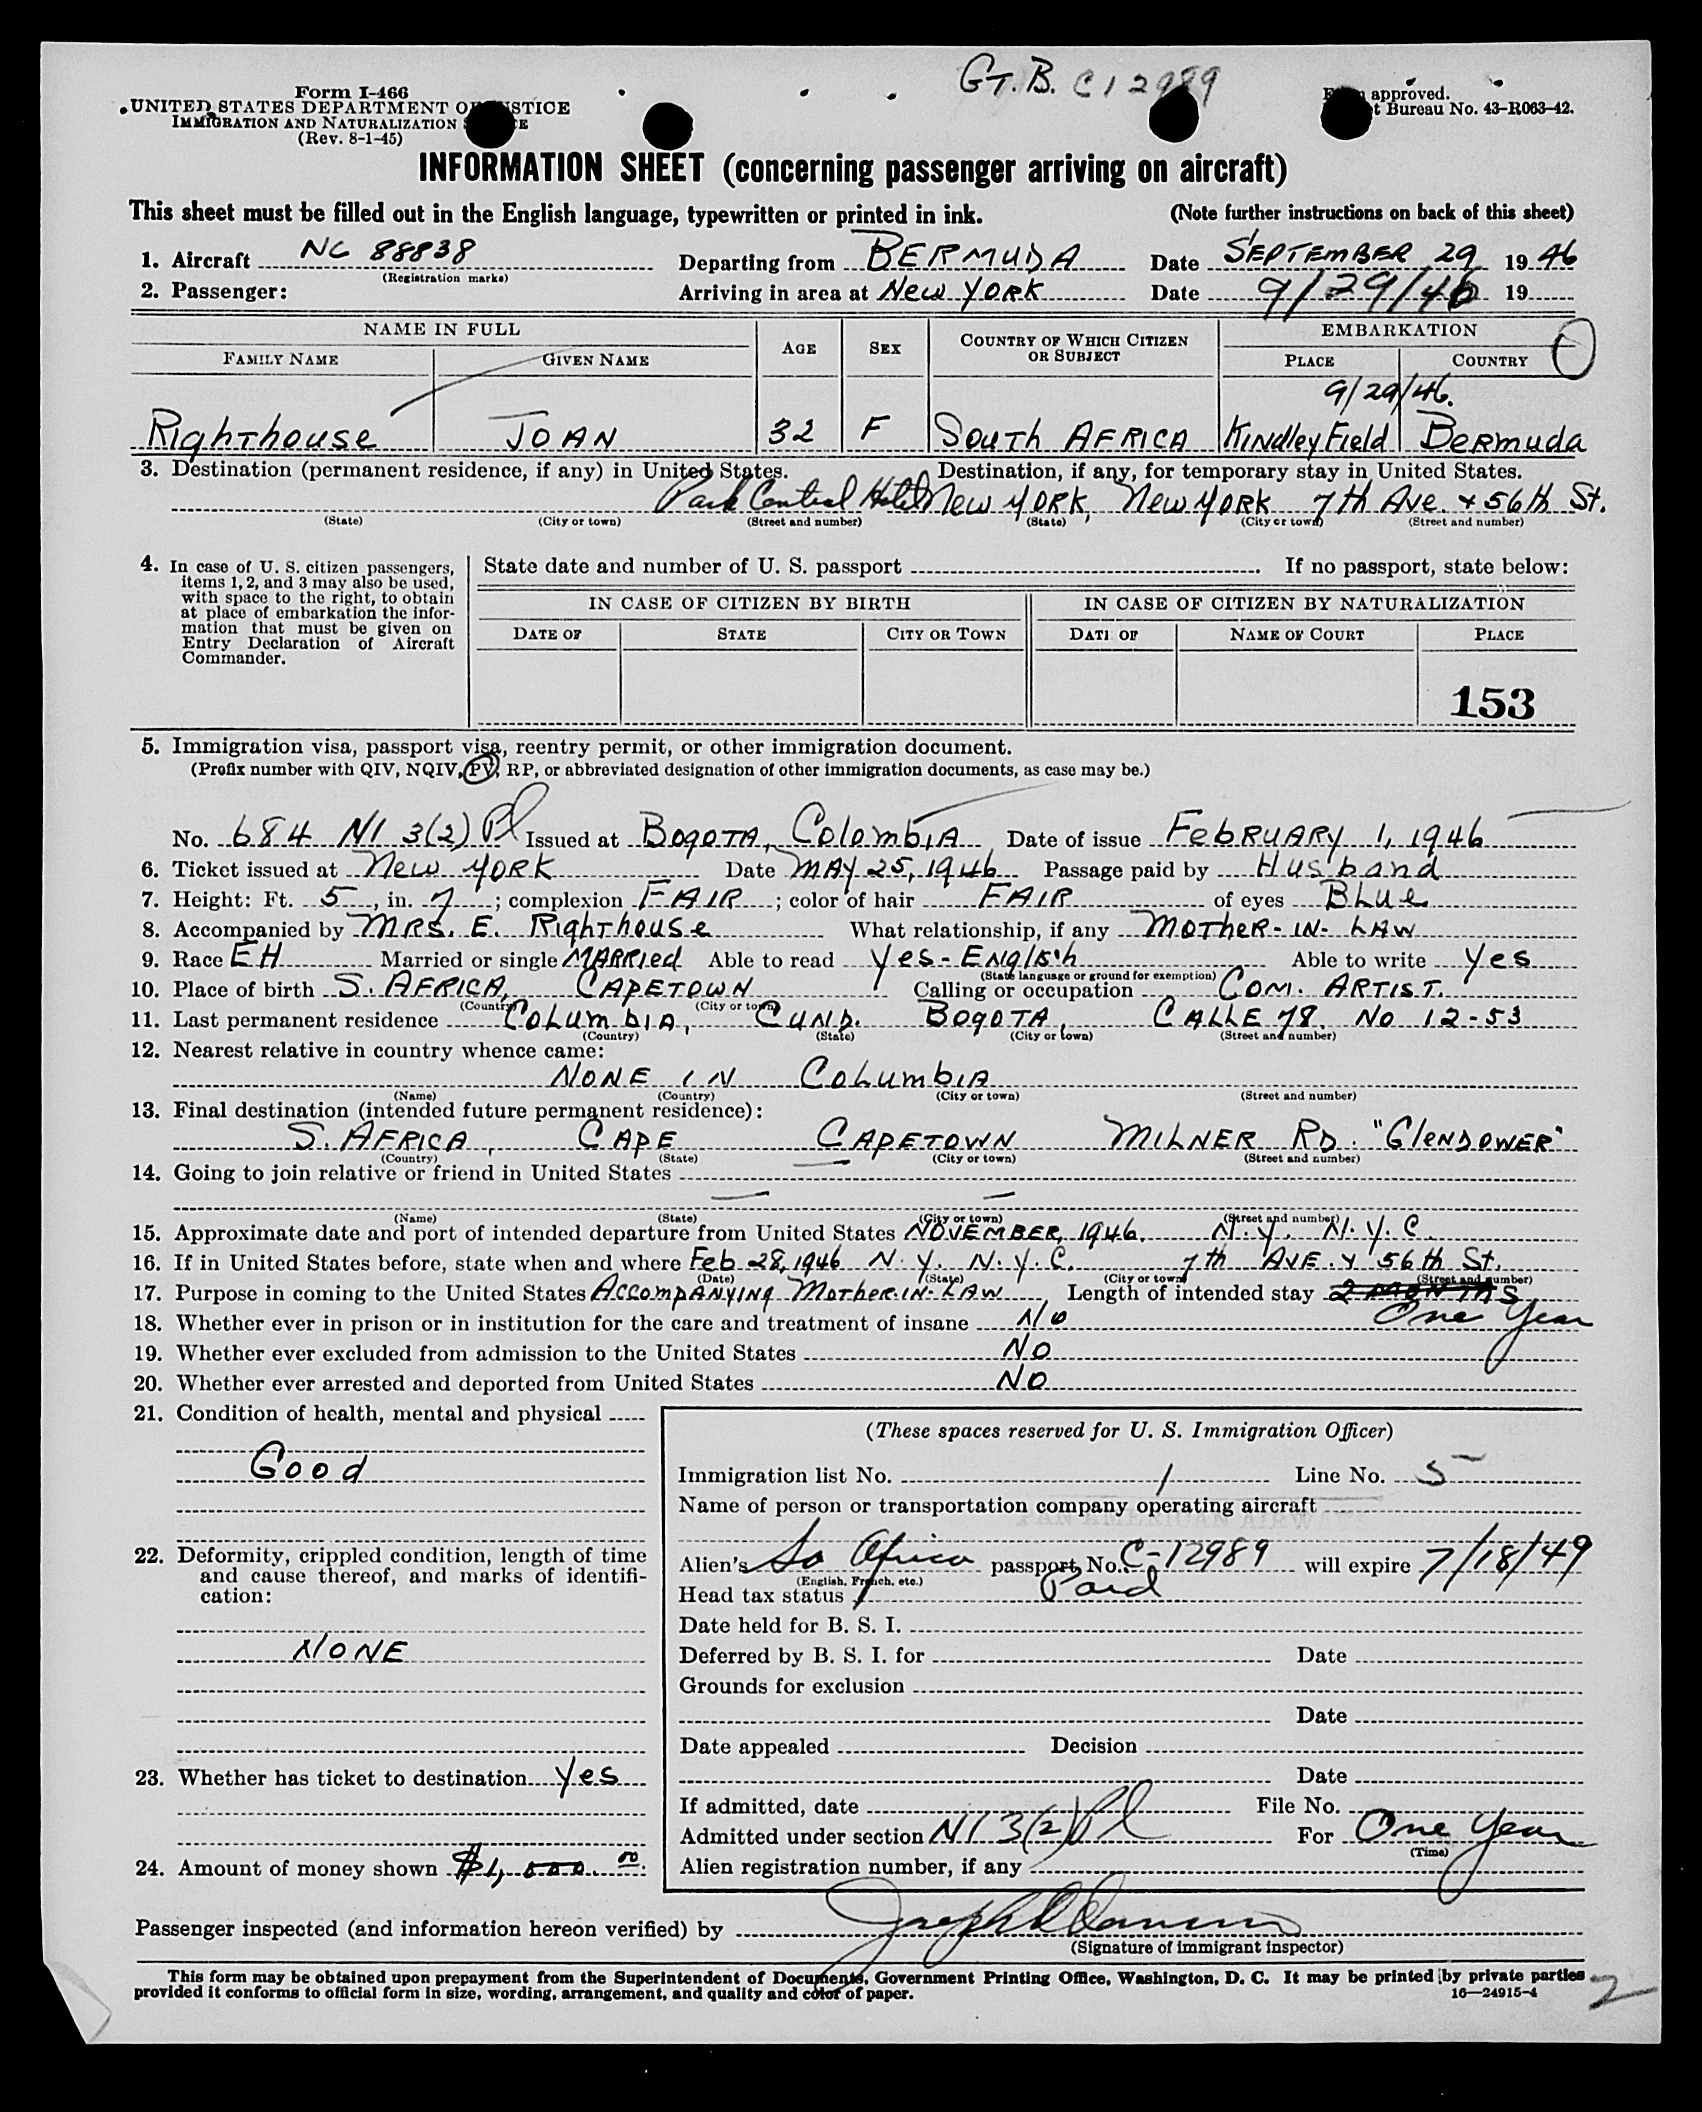 GT. B. C12989
Form I-466
UNITED STATES DEPARTMENT OF JUSTICE
IMMIGRATION AND NATURALIZATION
(Rev. 8-1-45)
approved.
t Bureau No. 43-R063-42.
INFORMATION SHEET (concerning passenger arriving on aircraft)
This sheet must be filled out in the English language, typewritten or printed in ink. (Note further instructions on back of this sheet)
1. Aircraft NC 88838 Departing from BERMUDA Date SEPTEMBER 29 1946
(Registration marks)
2. Passenger: Arriving in area at New YORK Date 9/29/46 19
NAME IN FULL
FAMILY NAME GIVEN NAME AGE SEX COUNTRY OF WHICH CITIZEN OR SUBJECT EMBARKATION
PLACE COUNTRY
9/29/46.
RighThouse JOAN 32 F SOUTH AFRICA KINdley Field BERMUDA
3. Destination (permanent residence, if any) in United States. Destination, if any, for temporary stay in United States.
Park Central Hotel New YORK, New YORK 7th Ave. + 56th St.
(State) (City or town) (Street and number) (State) (City or town) (Street and number)
4. In case of U. S. citizen passengers, items 1, 2, and 3 may also be used, with space to the right, to obtain at place of embarkation the information that must be given on Entry Declaration of Aircraft Commander.
State date and number of U. S. passport If no passport, state below:
IN CASE OF CITIZEN BY BIRTH IN CASE OF CITIZEN BY NATURALIZATION
DATE OF STATE CITY OR TOWN DATE OF NAME OF COURT PLACE
153
5. Immigration visa, passport visa, reentry permit, or other immigration document.
(Prefix number with QIV, NQIV, PV, RP, or abbreviated designation of other immigration documents, as case may be.)
No. 684 NI 3(2) Pl Issued at BOGOTA, COLOMBIA Date of issue FEBRUARY 1, 1946
6. Ticket issued at New YORK Date MAY 25, 1946 Passage paid by Husband
7. Height: Ft. 5, in. 7; complexion FAIR; color of hair FAIR of eyes BLue
8. Accompanied by MRS. E. RighThouse What relationship, if any MOTHER-IN-LAW
9. Race EH Married or single MARRIED Able to read Yes-English Able to write Yes
(State language or ground for exemption)
10. Place of birth S. AFRICA, CAPETOWN Calling or occupation COM. ARTIST.
(Country) (City or town)
11. Last permanent residence COLUMBIA, CUND. BOGOTA, CALLE 78. No 12-53
(Country) (State) (City or town) (Street and number)
12. Nearest relative in country whence came:
NONE IN COLUMBIA
(Name) (Country) (City or town) (Street and number)
13. Final destination (intended future permanent residence):
S. AFRICA, CAPE CAPETOWN MILNER RD. "GLENDOWER"
(Country) (State) (City or town) (Street and number)
14. Going to join relative or friend in United States
(Name) (State) (City or town) (Street and number)
15. Approximate date and port of intended departure from United States NOVEMBER, 1946. N.Y. N.Y.C.
16. If in United States before, state when and where Feb 28, 1946 N.Y. N.Y.C. 7th AVE. Y 56th St.
(Date) (State) (City or town) (Street and number)
17. Purpose in coming to the United States ACCOMPANYING MOTHER-IN-LAW Length of intended stay 2 MONTHS
One Year
18. Whether ever in prison or in institution for the care and treatment of insane No
19. Whether ever excluded from admission to the United States No
20. Whether ever arrested and deported from United States No
21. Condition of health, mental and physical
Good
22. Deformity, crippled condition, length of time and cause thereof, and marks of identification:
NONE
23. Whether has ticket to destination Yes
24. Amount of money shown $1,500.00
(These spaces reserved for U. S. Immigration Officer)
Immigration list No. 1 Line No. 5
Name of person or transportation company operating aircraft
PAN AMERICAN AIRWAYS
Alien's So Africa passport, No. C-12989 will expire 7/18/49
(English, French, etc.)
Head tax status Paid
Date held for B. S. I.
Deferred by B. S. I. for Date
Grounds for exclusion
Date
Date appealed Decision
Date
If admitted, date File No.
Admitted under section NI 3(2) Pl For One Year
(Time)
Alien registration number, if any
Passenger inspected (and information hereon verified) by
(Signature of immigrant inspector)
This form may be obtained upon prepayment from the Superintendent of Documents, Government Printing Office, Washington, D. C. It may be printed by private parties
provided it conforms to official form in size, wording, arrangement, and quality and color of paper. 16—24915-4
2